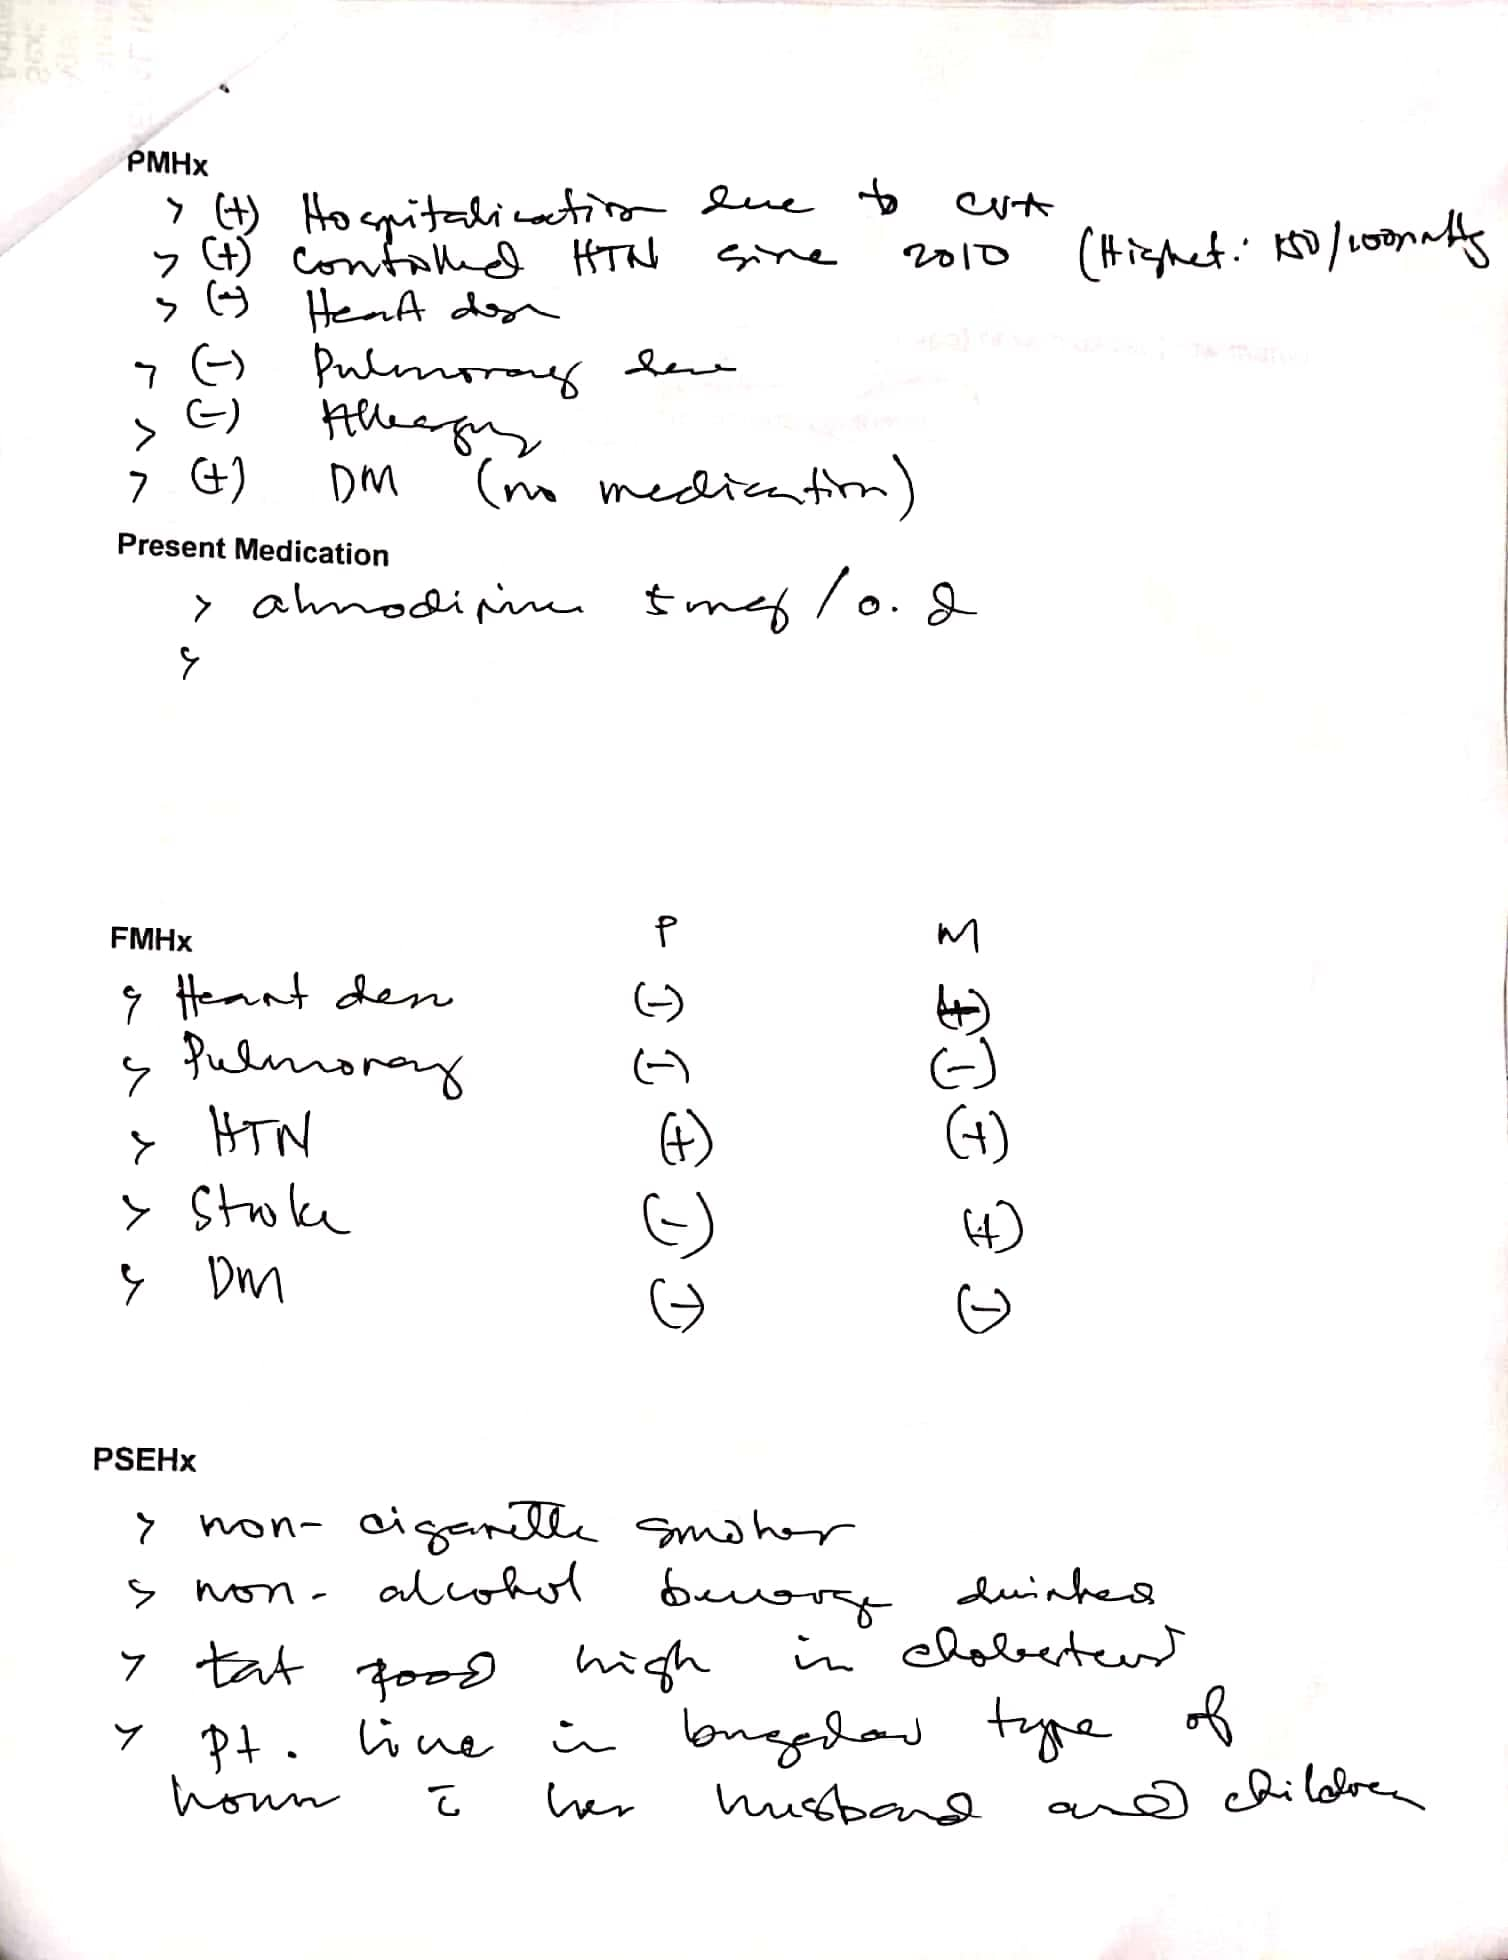 PMHx
> (+) Hospitalization due to CVA
> (+) Controlled HTN since 2010 (Highest: 150/100mmHg
> (-) Heart dse
> (-) Pulmonary dse
> (-) Allergy
> (+) DM (no medication)
Present Medication
> amlodipine 5mg / o.d
>
FMHx P M
> Heart dse (-) (+)
> Pulmonary (-) (-)
> HTN (+) (+)
> Stroke (-) (+)
> DM (-) (-)
PSEHx
> non-cigarette smoker
> non-alcohol beverage drinker
> food high in cholesterol
> Pt. live in bungalow type of
house c̄ her husband and children